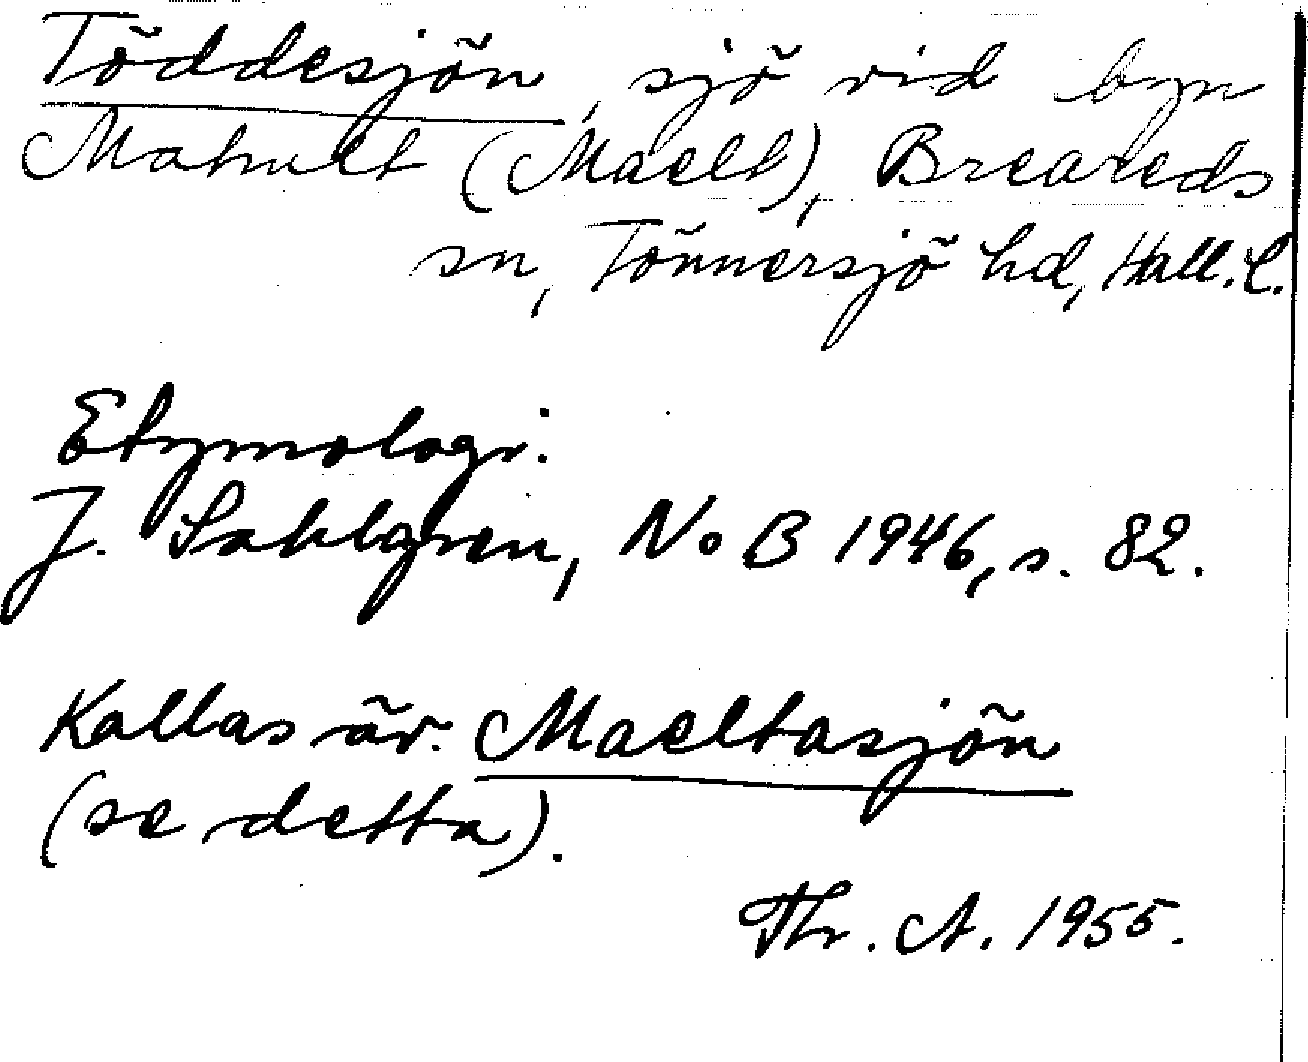 Töddesjön, sjö vid byn
Mahult (Maelt), Breareds
sn, Tönnersjö hd, Hall. l.
Etymologi:
J. Sahlgren, NoB 1946, s. 82.
Kallas äv. Maeltasjön
(se detta).
Thr. A. 1955.